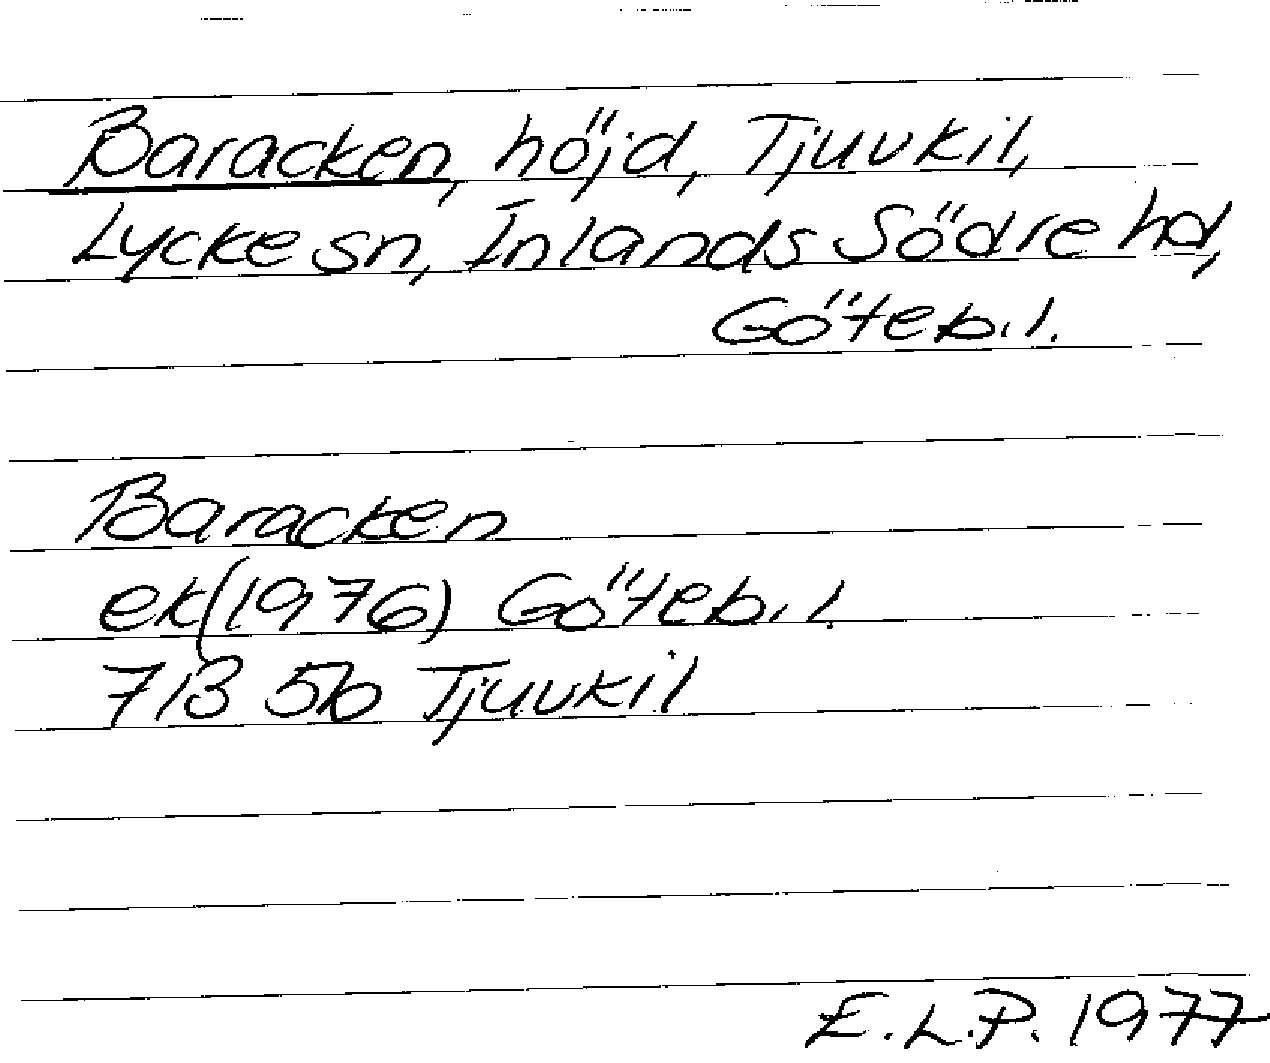 Baracken, höjd, Tjuvkil,
Lycke sn, Inlands Södre hd,
Göteb.l.
Baracken
ek(1976) Göteb.l.
7B 5b Tjuvkil
E.L.P. 1977